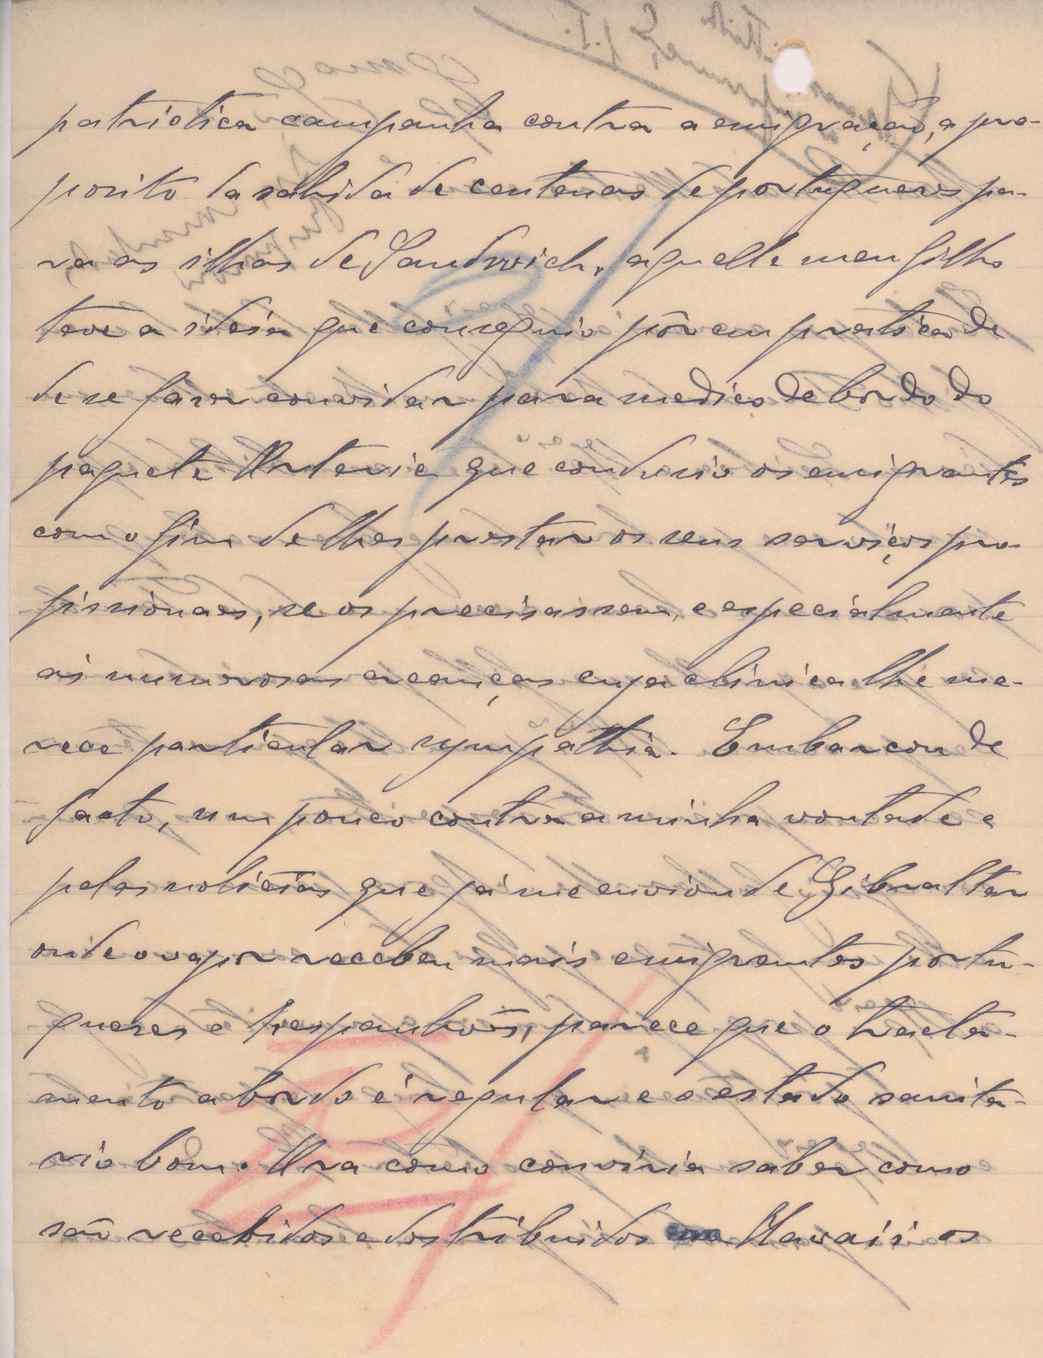 patriotica campanha contra a emigração, a pro-
posito da sahida de centenas de portugueses pa-
ra as ilhas de Sandwich, aquelle meu filho
teve a ideia que conseguio pôr em pratica de
de se fazer convidar para medico de bordo do
paquete Orteric que conduzio os emigrantes
com o fim de lhes prestar os seus serviços pro-
fissionaes, se os precisassem, e especialmente
ás numerosas creanças cuja clinica lhe me-
rece particular sympathia. Embarcou de
facto, um pouco contra a minha vontade e
pelas noticias que já me enviou de Gibraltar
onde o vapor recebeu mais emigrantes portu-
gueses e hespanhoes, parece que o tracta-
mento a bordo é regular e o estado sanita-
rio bom. Ora como conviria saber como
são recebidos e destribuidos em Hawaii os